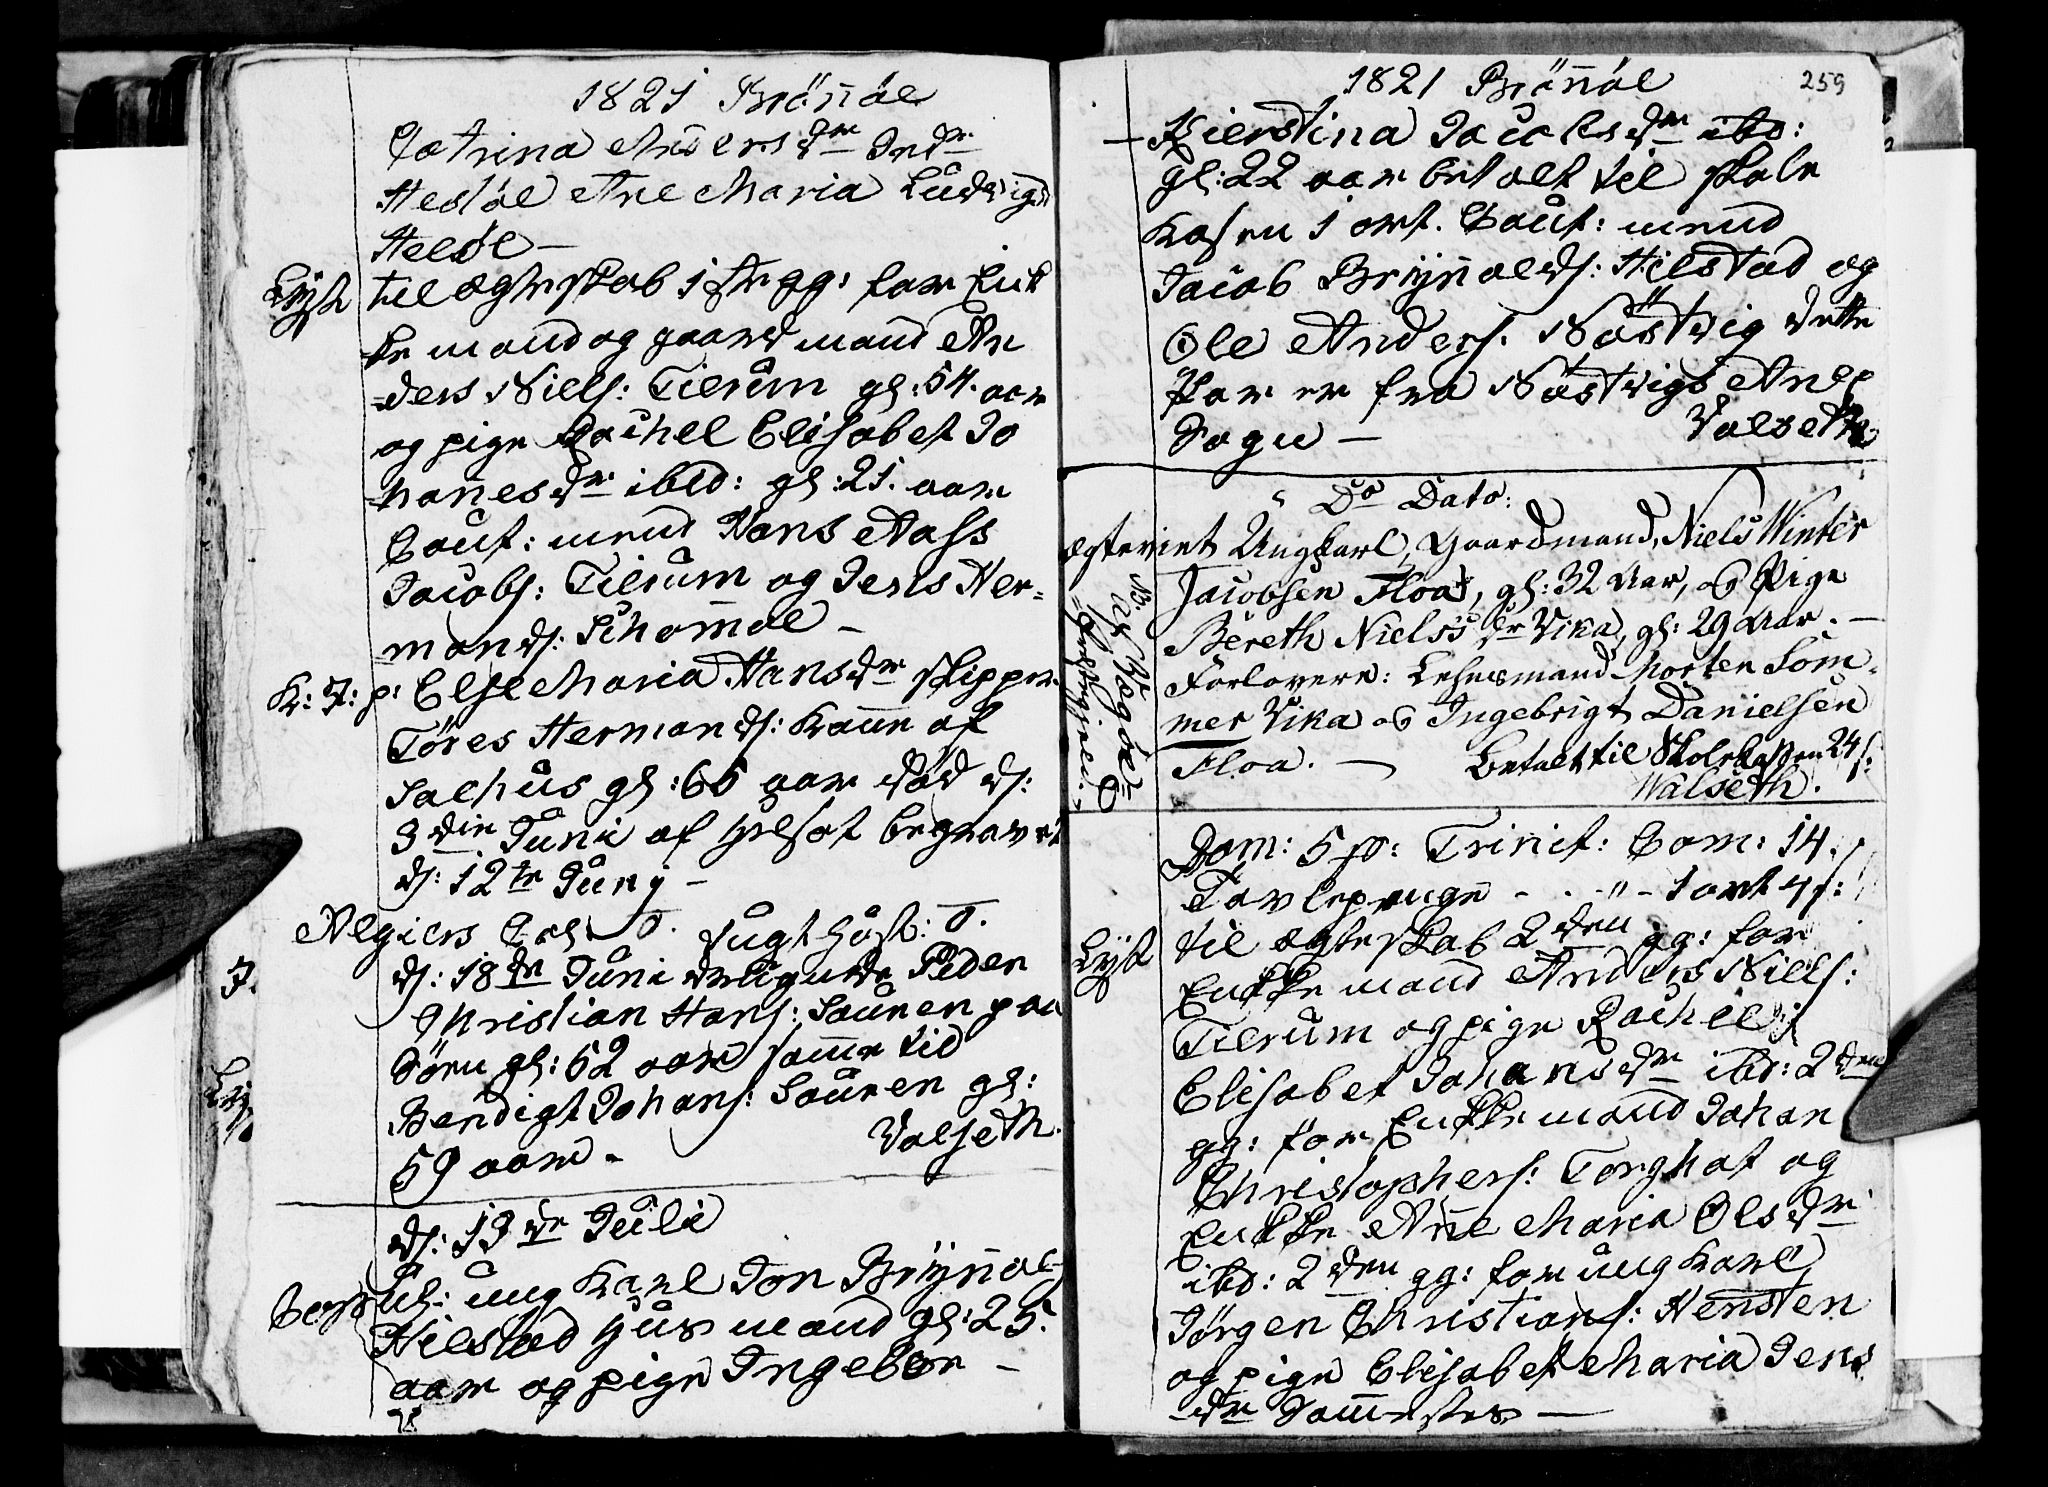 1821 Brönöe
Catrina Andersdr Indr
Hestöe Ane Maria Ludvigdr
Heelöe —
Lyst til ægteskab 1ste gg: for Enk
ke mand og gaardmand An
ders Niells: Tilrum gl: 54. aar
og pige Rachel Elisabet Jo
hanesdr ibld: gl: 21. aar
Cout: mend Hans Aass
Jacobs: Tilrum og Jens Her-
mands: Schomoe —
K: J: p: Else Maria Hansdr skipper
Töres Hermands: Kone af
Salhus gl: 66 aar död d:
3die Juni af begravet
d: 12te Juny —
T. T.
J. d: 18de Juni Peder
Christian Hans: Sauren paa
Sörn gl: 62 aar samme tid
Bendigt Johans: Sauren gl:
59 aar - Valseth.
d: 13de Juli
Cop: ung Karl Jon Brÿnnol
Hilstad husmand gl: 25.
aar og pige Ingebor —
1821 Brönöe 259
— Kierstina Jacobsdr ibd:
gl: 22 aar betalt til skole
Kasen 1 ort. Cout: mend
Jacob Brÿnnolds: Hilstad og
Ole Anders. Növstvig dette
Par er fra Nöstvigs Anep
Sogn — Valseth
Do Dato:
Ægteviet Ungkarl, Gaardmand, Niels Winter
Jacobsen Floa, gl: 32 Aar, og Pige
Bereth Nielsdr Vika, gl: 29 Aar. —
Forlovere: Lehnsmand Morten Som-
mer Vika og Ingebrigt Danielsen
Floa. — Betalt til Skolekassen 24 s:
Walseth.
Dom: 5 p: Trinit: Com: 14.
Tavlepenge - - " - 1 ort 4 s:
Lyst til ægteskab 2den gg: for
Enkkemand Anders Niells:
Tilrum og pige Rachel
Elisabet Johansdr ibd: 2den
gg: for Enkkemand Johan
Christophers: Torghat og
Enkke Ane Maria Olsdr
ibd: 2den gg: for ung Karl
Jörgen Christians: Hensten
og pige Elisabet Maria Jens
dr —